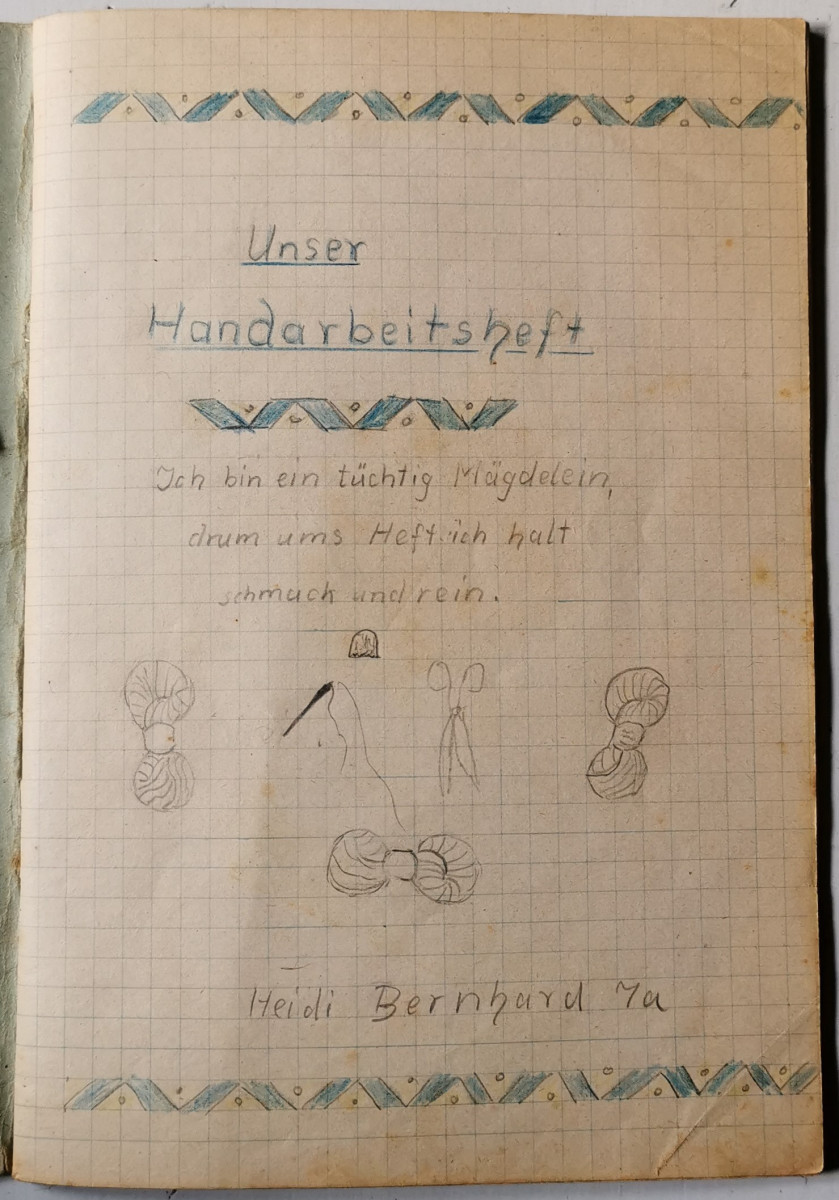 Unser
Handarbeitsheft
Ich bin ein tüchtig Mägdelein,
drum ums Heft ich halt
schmuck und rein.
Heidi Bernhard 7a